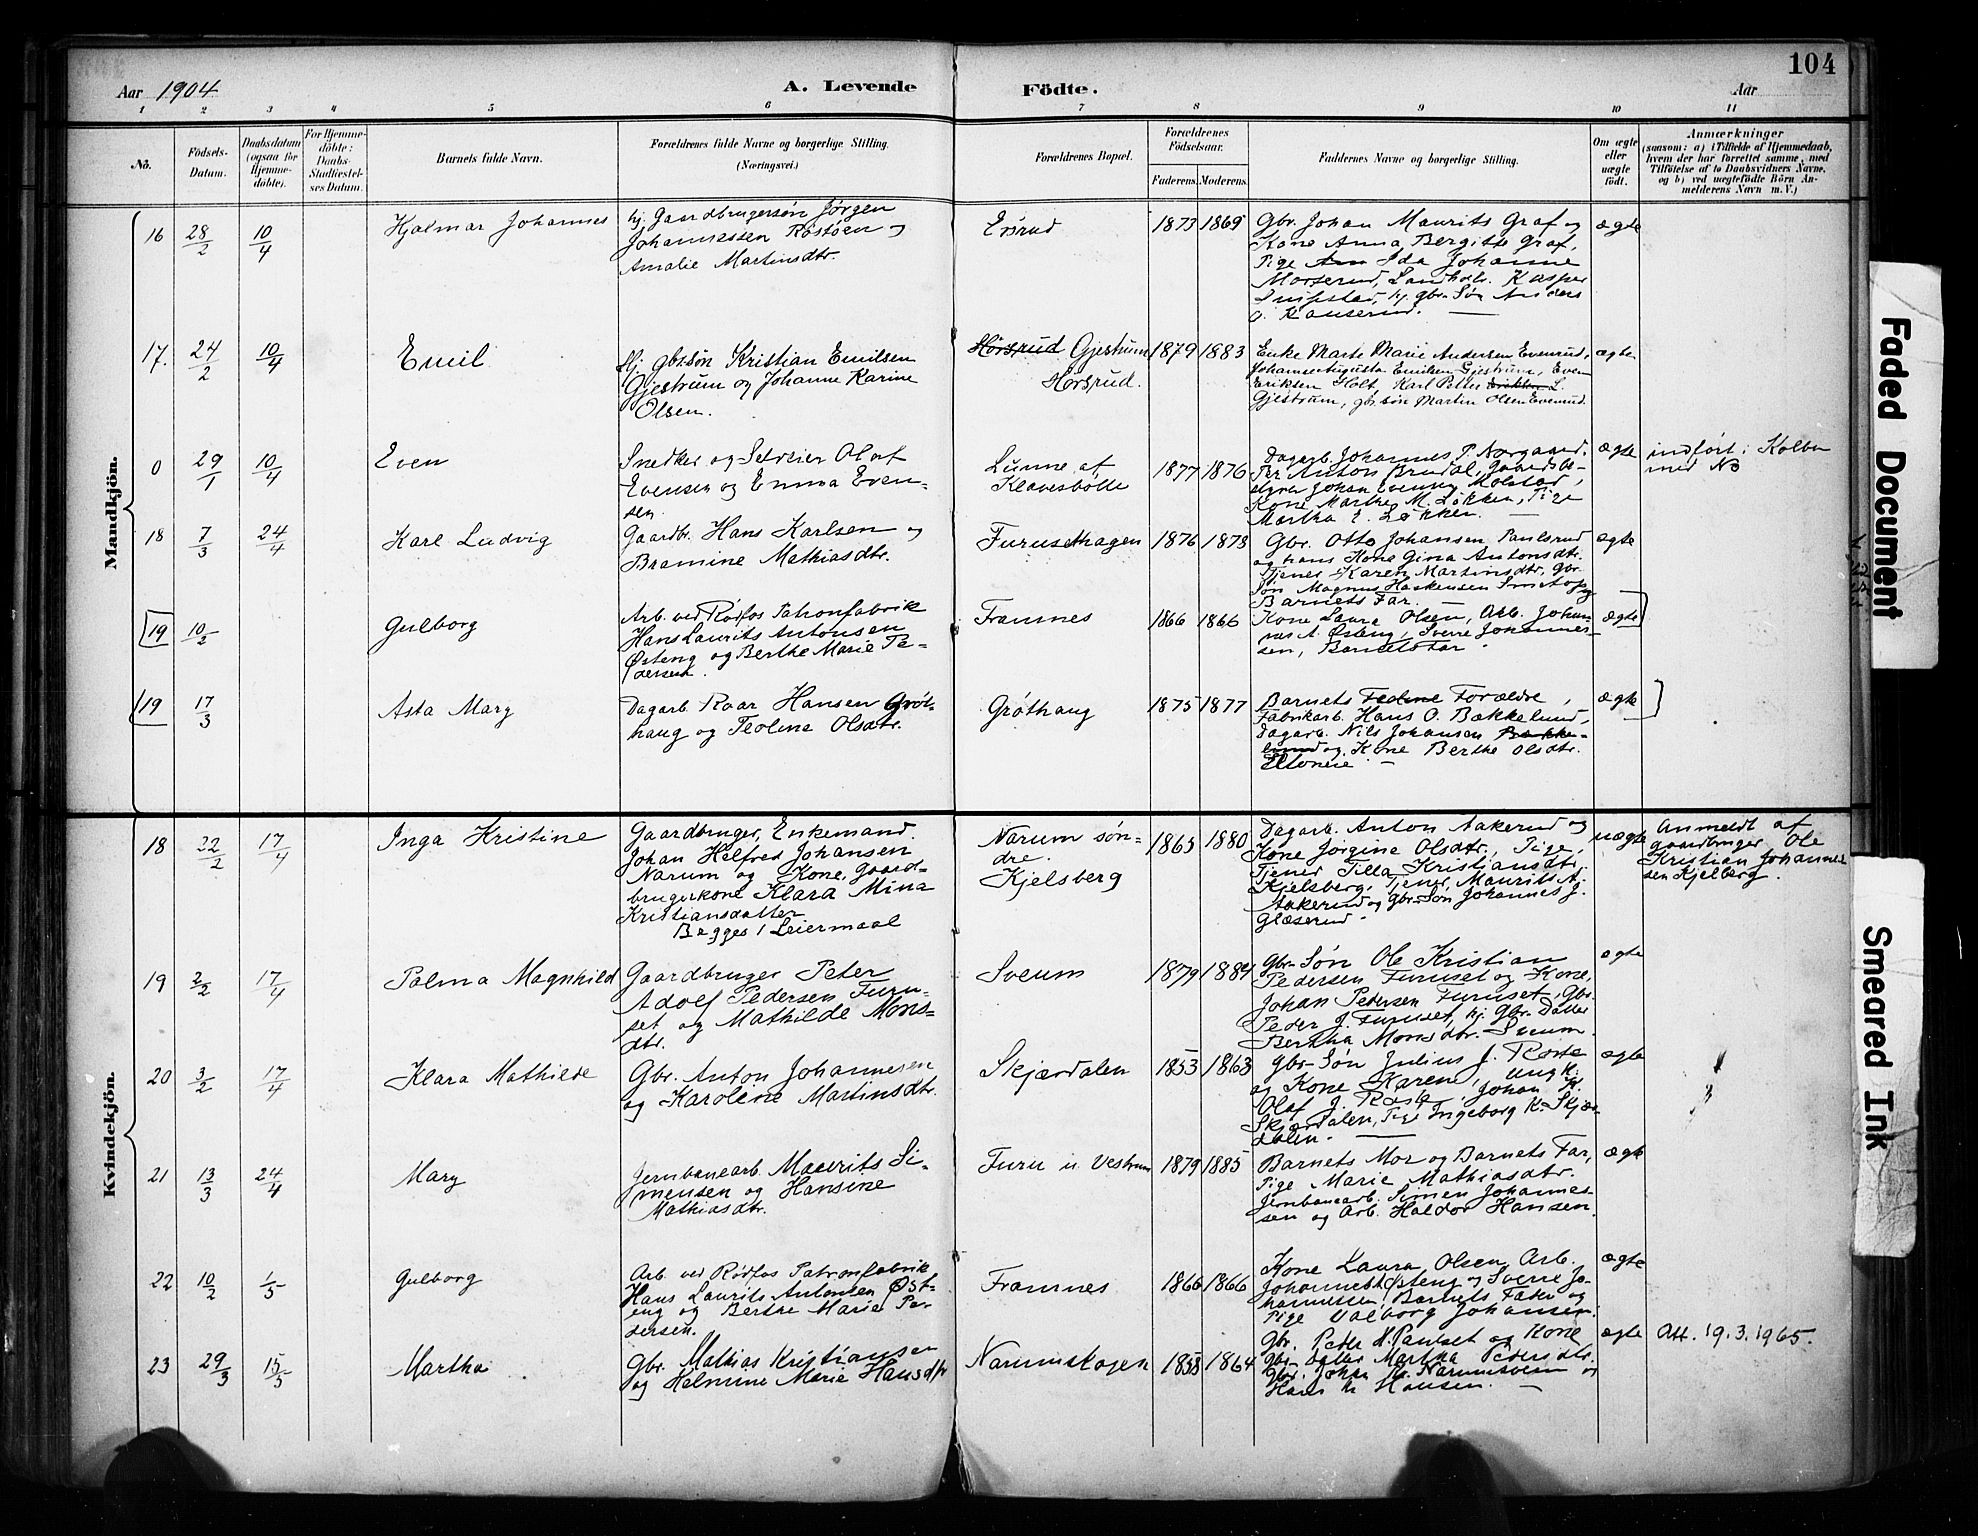 104
Aar 1904
A. Levende Födte.
Aar
1 2 3 4 5 6 7 8 9 10 11
Nö.
Födsels-Datum.
Daabsdatum (ogsaa för Hjemme-döbte).
For Hjemme-döbte: Daabs-Stadfæstel-ses Datum.
Barnets fulde Navn.
Forældrenes fulde Navne og borgerlige Stilling.
(Næringsvei.)
Forældrenes Bopæl.
Forældrenes Födselsaar.
Faderens. Moderens.
Faddernes Navne og borgerlige Stilling.
Om ægte eller uægte födt.
Anmærkninger
(saasom: a) i Tilfælde af Hjemmedaab, hvem der har forrettet samme, med Tilföielse af to Daabsvidners Navne, og b) ved uægtefödte Börn An-melderens Navn m. V.)
Mandkjön.
16 28/2 10/4
Hjalmar Johannes
hj. Gaardbrugersøn Jørgen
Johannessen Røstøen og
Amalie Martinsdtr.
Ersrud
1873 1869
Gbr. Johan Maurits Graf og
Kone Anna Bergitte Graf,
Pige Ida Johanne
Morserud, Landhdl. Kasper
hj. gbr. Søn Anders
ægte
17. 24/2 10/4
Emil
Hj. gbr.søn Kristian Emilsen
Gjestrum og Johanne Karine
Olsen.
Hørsrud Gjestrum
Hørsrud.
1879 1883
Enke Marte Marie Andersen Evenrud,
Johanne Augusta Emilsen Gjestrum, Even
Eriksen Holt, Karl Petter Eriksen L.
Gjestrum, gbr.søn Martin Olsen Evenrud.
ægte
0 29/1 10/4
Even
Snedker og Selveier Olaf
Evensen og Emma Even-
sen.
Lunne af
Klavesbølle
1877 1876
Dagarb. Johannes P. Norgaard.
Per Anton Brudal, Gaardbe-
styrer Johan Evensen Molstad,
Kone Marthe M. Løkken, Pige
Martha E. Løkken.
ægte
indført i Kolbu
med No
18 7/3 24/4
Karl Ludvig
Gaardbr. Hans Karlsen og
Bramine Mathiasdtr.
Furusethagen
1876 1873
Gbr. Otto Johansen Paulsrud
og hans Kone Gina Antonsdtr.
Tjener Karen Martinsdtr. Gbr
Søn Magnus Haakensen Smetop og
Barnets Far.
ægte
19 10/2
Gulborg
Arb. ved Rødfos Patronfabrik
Hans Laurits Antonsen
Østeng og Berthe Marie Pe-
dersen.
Framnes
1866 1866
Kone Laura Olsen, Arb. Johan-
nes A. Østeng, Sverre Johannes-
sen, Barnets Far.
ægte
19 17/3
Asta Mary
Dagarb. Roar Hansen Grøt-
haug og Teoline Olsdtr.
Grøthaug
1875 1877
Barnets Teoline Forældre,
Fabrikarb. Hans O. Bakkelund,
Dagarb. Nils Johansen Bakke-
lund og Kone Berthe Olsdtr.
ægte
Kvindekjön.
18 22/2 17/4
Inga Kristine
Gaardbruger, Enkemand.
Johan Helfred Johansen
Narum og Kone, Gaard-
brugerkone Klara Mina
Kristiansdatter
Begges 1 Leiermaal
Narum søn-
dre.
Kjelsberg
1865 1880
Dagarb. Anton Aakerud og
Kone Jørgine Olsdtr, Pige,
Tjener Tilla Kristiansdtr.
Kjelsberg, Tjener Maurits A.
Aakerud og Gbr.-Søn Johannes J.
Glæserud.
uægte
Anmeldt af
gaardbruger Ole
Kristian Johannes
sen Kjelberg.
19 2/2 17/4
Palma Magnhild
Gaardbruger Peter
Adolf Pedersen Furu-
set og Mathilde Mons-
dtr.
Sveum
1879 1884
Gbr.-Søn Ole Kristian
Pedersen Furuset og Kone,
Johan Pedersen Furuset, Gbr.
Peder J. Furuset, hj. Gbr. Datter
Bertha Monsdtr. Sveum
ægte
20 3/2 17/4
Klara Mathilde
Gbr. Anton Johannesen
og Karoline Martinsdtr.
Skjærdalen
1853 1863
Gbr-Søn Julius J. Roste
og Kone Karen, Ungk.
Olaf J. Roste, Johan K.
Skjærdalen, Pige Ingeborg K. Skjær-
dalen.
ægte
21 13/3 24/4
Mary
Jernbanearb. Maurits Si-
mensen og Hansine
Mathiasdtr.
Furu u. Vestrum
1879 1885
Barnets Mor og Barnets Far,
Pige Marie Mathiasdtr.
Jernbanearb. Simen Johannes-
sen og Arb. Haldor Hansen.
ægte
22 10/2 1/5
Gulborg
Arb. ved Rødfos Patronfabrik
Hans Laurits Antonsen Øst-
eng og Berthe Marie Pe-
dersen.
Framnes
1866 1866
Kone Laura Olsen, Arb.
Johannes Østeng og Sverre Jo-
hannessen, Barnets Fader og
Pige Valborg Johansen.
ægte
23 29/3 15/5
Martha
Gbr. Mathias Kristiansen
og Helmine Marie Hansdtr
Narumskogen
1858 1864
Gbr. Peder H. Paulset og Kone,
Gbr.-datter Martha Pedersdtr.
Gbr. Johan M. Narumsveen og
Hans M. Hansen.
ægte
Att. 19.3.1965.
Faded Document
Smeared Ink